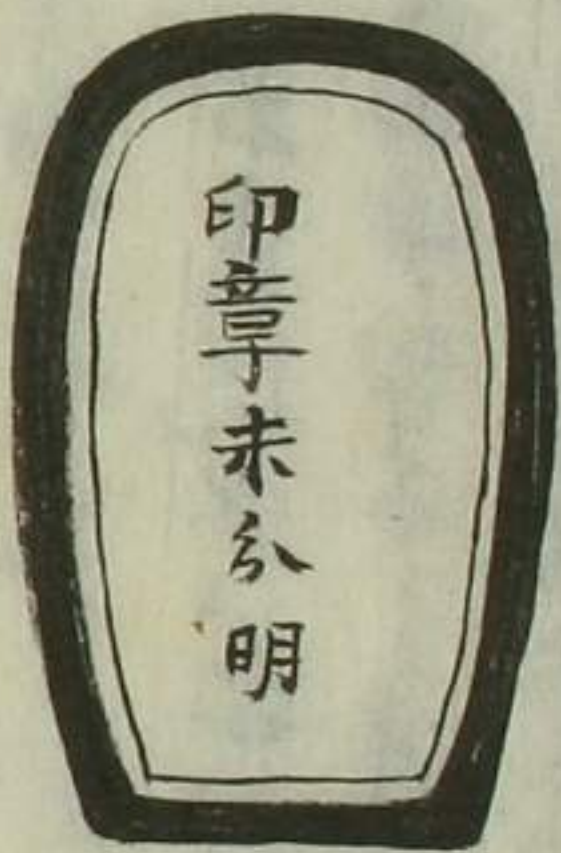 印章未分明